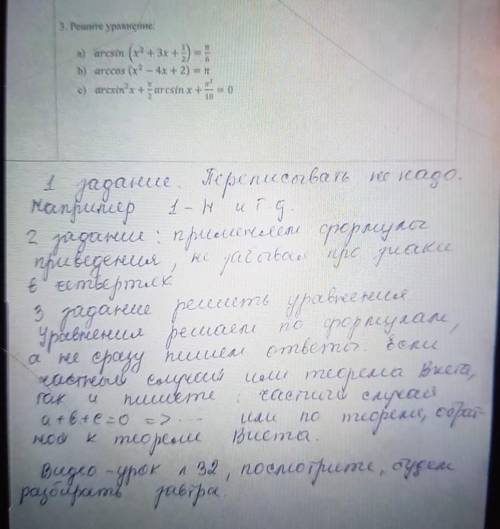 3. Решите уравнение:
a) arcsin (x² + 3x + 1/2) = π/6
b) arccos (x² − 4x + 2) = π
c) arcsin²x + π/2 arcsin x + π²/18 = 0
1 задание. Переписывать не надо.
Например 1 - Н и т д.
2 задание: применяем формулы
приведения, не забывая про знаки
в четвертях
3 задание решить уравнения
Уравнения решаем по формулам,
а не сразу пишем ответы. Если
частный случай или теорема Виета,
так и пишете: частный случай
a + b + c = 0 => ... или по теореме, обрат-
ной к теореме Виета.
Видео-урок л 32, посмотрите, будем
разбирать завтра.